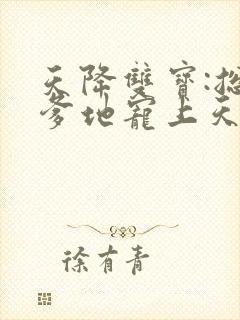 天降雙寶:總
爹地寵上天
徐有青